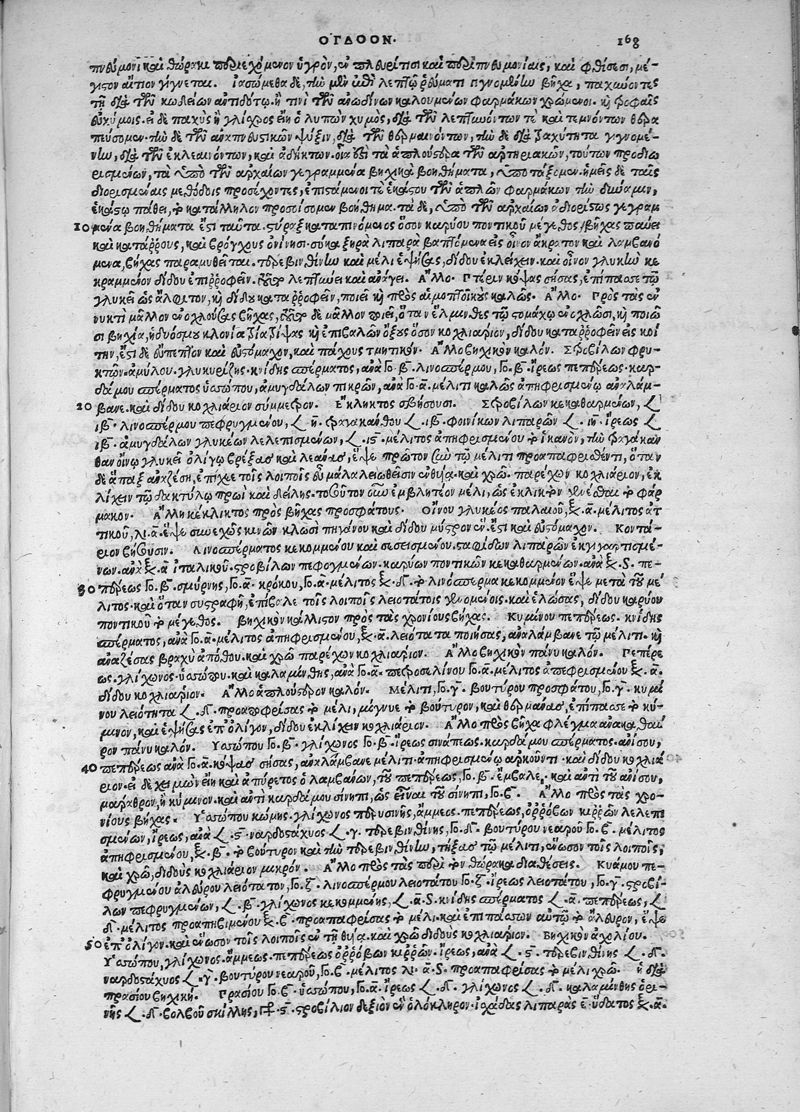 ΟΓΔΟΟΝ. 168
πνεύμονι καὶ θώρακι περιεχόμενον ὑγρὸν, ἐν πλευρίτισι καὶ περιπνευμονίαις, καὶ φθίσεσι, μέ-
γιστον αἴτιον γίγνεται. ἰασόμεθα δὲ, τὴν μὲν ἐπὶ λεπτῷ ῥεύματι γιγνομένην βῆχα, παχύνοντες
τῇ διὰ τῶν κωδειῶν ἀντιδότῳ ἤ τινι τῶν ἀνωδύνων καλουμένων φαρμάκων χρώμενοι. καὶ τροφαῖς
εὐχύμοις. εἰ δὲ παχὺς ἢ γλίσχρος εἴη ὁ λυπῶν χυμὸς, διὰ τῶν λεπτυνόντων τε καὶ τεμνόντων θερα
πεύσομεν. τὴν δὲ τῶν ἀναπνευστικῶν ψύξιν, διὰ τῶν θερμαινόντων, τὴν δὲ διὰ τραχύτητα γιγνομέ-
νην, διὰ τῶν ἐκλεαινόντων, καὶ ἀδήκτων.
ερισμένων, τὰ ὑπὸ τῶν ἀρχαίων γεγραμμένα βηχικὰ βοηθήματα, ὑποτάξομεν. ἡμεῖς δὲ ταῖς
διορισμέναις μεθόδοις προσέχοντες, ἐπιστάμενοί τε ἑκάστου τῶν ἁπλῶν φαρμάκων τὴν δύναμιν,
ἑκάστῳ πάθει, τὸ κατάλληλον προσοίσομεν βοήθημα. τὰ δὲ, ὑπὸ τῶν ἀρχαίων ἀδιορίστως γεγραμ
10 μένα βοηθήματα ἐστὶ ταῦτα. στύραξ καταπινόμενος ὅσον καρύου ποντικοῦ μέγεθος, βῆχας παύει
καὶ κατάρρους, καὶ βρόγχους ὀνίνησι. σῦκα ξηρὰ λιπαρὰ βαπτόμενα εἰς οἶνον ἄκρατον καὶ λαμβανό
μενα, βῆχας παραμυθεῖται. τερεβινθίνην καὶ μέλι ἑψήσας, δίδου ἐκλείχειν. καὶ οἶνον γλυκὺν κε
κραμμένον δίδου ἐπιρροφεῖν. λεπτύνει καὶ ἀνάγει. Ἄλλο. Πτέριν κόψας σήσας, ἐπίπασσε τῷ
γλυκεῖ ὡς ἄλφιτον, καὶ δίδου καταρροφεῖν, ποιεῖ καὶ πρὸς αἱμοπτοϊκοὺς καλῶς. Ἄλλο. Πρὸς τὰς ἐν
νυκτὶ μᾶλλον ἐνοχλούσας βῆχας, μᾶλλον ποιεῖ, ὅταν ἕλμινθες τῷ στομάχῳ ἐνοχλῶσι, καὶ ποιῶ
σι βηχία, ἡδυόσμου κλωνία τρία τρίψας καὶ ἐπιβαλὼν ὄξους ὅσον κοχλιάριον, δίδου καταρροφεῖν εἰς κοί
την, ἔστι δὲ εὔπεπτον καὶ εὐστόμαχον, καὶ πάχους τμητικόν. Ἄλλο βηχικὸν καλόν. Στροβίλων φρυ-
κτῶν. ἀμύλου. γλυκυρίζης. κνίδης σπέρματος, ἀνὰ Γο. β. λινοσπέρμου, Γο. β. ἴρεως πεπέρεως. καρ-
δάμου σπέρματος ὑσσώπου, ἀμυγδάλων πικρῶν, ἀνὰ Γο. α. μέλιτι καλῶς ἀπηφρισμένῳ ἀναλάμ-
20 βανε. καὶ δίδου κοχλιάριον σύμμετρον. Ἔκλεικτος Στροβίλων κεκαθαρμένων,
ιβ. λινοσπέρμου πεφρυγμένου, τραγακάνθου ιβ. φοινίκων λιπαρῶν ἴρεως
ιβ. ἀμυγδάλων γλυκέων λελεπισμένων, μέλιτος ἀπηφρισμένου τὸ ἱκανὸν, τὴν τραγακάν
θαν οἴνῳ γλυκεῖ ὀλίγῳ βρέξας καὶ λεάνας, ἕψε πρῶτον σὺν τῷ μέλιτι προαπαφρισθέντι, ὅταν
δὲ ἅπαξ ἀναζέσῃ, ἐπίχεε τοῖς λοιποῖς οὖν μαλαλειωθεῖσιν ἐν θυίᾳ. καὶ χρῶ. παρέχων κοχλιάριον, ἐκ
λίχειν τῷ δακτύλῳ πρωὶ καὶ δείλης. τοσοῦτον οὖν ἐμβλητέον μέλι, ὡς ἐκλικτὸν γενέσθαι τὸ φάρ
μακον. Ἄλλη ἔκλεικτος πρὸς βῆχας προσφάτους. Οἴνου γλυκέος παλαιοῦ, ξε. α. μέλιτος ἀτ
τικοῦ, λι. α. ἕψε συνεχῶς κινῶν κλωσὶ πηγάνου καὶ δίδου μύστρον ἕν. ἔστι καὶ εὐστόμαχον.
Λινοσπέρματος κεκομμένου καὶ σεσησμένου. σταφίδων λιπαρῶν ἐκγιγαρτισμέ-
νων. ἀνὰ ξε. α ἰταλικοῦ. στροβίλων πεφογμένων. καρύων ποντικῶν κεκαθαρμένων. ἀνὰ ξε. S. πε-
30 πέρεως Γο. β. σμύρνης, Γο. α. κρόκου, Γο. α. μέλιτος ξε. δ. τὸ λινόσπερμα κεκομμένον ἕψε μετὰ τοῦ μέ
λιτος. καὶ ὅταν συστραφῇ, ἐπίβαλε τοῖς λοιποῖς λειοτάτοις γενομένοις. καὶ ἑλώσας, δίδου καρύου
ποντικοῦ τὸ μέγεθος. Βηχικὸν κάλλιστον πρὸς τὰς χρονίους βῆχας. Κυμίνου πεπέρεως. κνίδης
σπέρματος, ἀνὰ Γο. α. μέλιτος ἀπηφρισμένου, ξε. α. λειότατα ποιήσας, ἀναλάμβανε τῷ μέλιτι. καὶ
ἀναζέσας βραχὺ ἀπόθου. καὶ χρῶ παρέχων κοχλιάριον. Ἄλλο βηχικὸν πάνυ καλόν. Πεπέρε
ως. γλίχωνος. ὑσσώπου. καὶ καλαμίνθης, ἀνὰ Γο. α. πετροσελίνου Γο. α. μέλιτος ἀπεφρισμένου ξε. α.
δίδου κοχλιάριον. Ἄλλο ἁπλούστερον καλόν. Μέλιτι, Γο. γ. βουτύρου προσφάτου, Γο. γ. κυμί
νου λειότητα δ. προαπαφρίσας τὸ μέλι, μίγνυε τὸ βούτυρον, καὶ θερμάνας, ἐπίπασσε τὸ κύ-
μινον, καὶ ἑψήσας ἐπ' ὀλίγον, δίδου ἐκλίχειν κοχλιάριον. Ἄλλο πρὸς βῆχα φλέγμα ἀνακαθαῖ
ρον πάνυ καλόν. Ὑσσώπου Γο. β. γλίχωνος Γο. β. ἴρεως σινάπεως. καρδάμου σπέρματος. ἀνίσου,
40 πεπέρεως ἀνὰ Γο. α. κόψας σήσας, ἀναλάμβανε μέλιτι ἀπηφρισμένῳ ἀρκοῦντι. καὶ δίδου κοχλιά
ριον. εἰ δὲ χειμὼν εἴη καὶ ἀπύρετος ὁ λαμβάνων, τοῦ πεπέρεως, Γο. β. ἔμβαλε, καὶ ἀντὶ τοῦ ἀνίσου,
μάραθρον, ἢ κύμινον. καὶ ἀντὶ καρδάμου σίνηπι, ὡς εἶναι τοῦ σίνηπι, Γο. ϛ. Ἄλλο πρὸς τὰς χρο-
νίους βῆχας. Ὑσσώπου κόμης. γλίχωνος ἄμμεος. πεπέρεως, ὀρόβων κιρρῶν λελεπι
σμένων, ἴρεως, ἀνὰ ναρδοστάχυος γ. τερεβινθίνης, Γο. δ. βουτύρου νεαροῦ Γο. ϛ. μέλιτος
ἀπηφρισμένου, ξε. β. τὸ βούτυρον καὶ τὴν τερεβινθίνην, τήξας τῷ μέλιτι, ἕνωσον τοῖς λοιποῖς,
καὶ χρῶ, διδοὺς κοχλιάριον μικρόν. Ἄλλο πρὸς τὰς περὶ τὸν θώρακα διαθέσεις. Κυάμου πε-
φρυγμένου ἀλεύρου λειότατον, Γο. ζ. λινοσπέρμου λειοτάτου Γο. ζ. ἴρεως λειοτάτου, Γο. γ. στροβί-
λων πεφρυγμένων, β. γλίχωνος κεκομμένης, α. S. κνίδης σπέρματος α. πεπέρεως,
δ. μέλιτος προαπηψιμένου ξε. ϛ. προαπαφρίσας τὸ μέλι. καὶ ἐπιπάσσων αὐτῷ τὸ ἄλευρον, ἕψε
50 ἐπ' ὀλίγον. καὶ ἕνωσον τοῖς λοιποῖς ἐν τῇ θυίᾳ. καὶ χρῶ διδοὺς κοχλιάριον. Βηχικὸν ἀχολίου.
Ὑσσώπου, γλίχωνος. ἄμμεως. πεπέρεως ὀρόβων κιρρῶν. ἴρεως, ἀνὰ τερεβινθίνης δ.
ναρδοστάχυος γ. βουτύρου νεαροῦ, Γο. ϛ. μέλιτος λι. α. S. προαπαφρίσας τὸ μέλι χρῶ. ἡ διὰ
πρασίου βηχική. Πρασίου Γο. ϛ. ὑσσώπου, Γο. α. ἴρεως δ. γλίχωνος δ. καλαμίνθης ὀρει-
νῆς δ. βολβοῦ σκίλλης, στροβίλιον δεξιὸν ἓν ὁλόκληρον. ἰσχάδας λιπαρὰς ε. ὕδατος ξε. α.